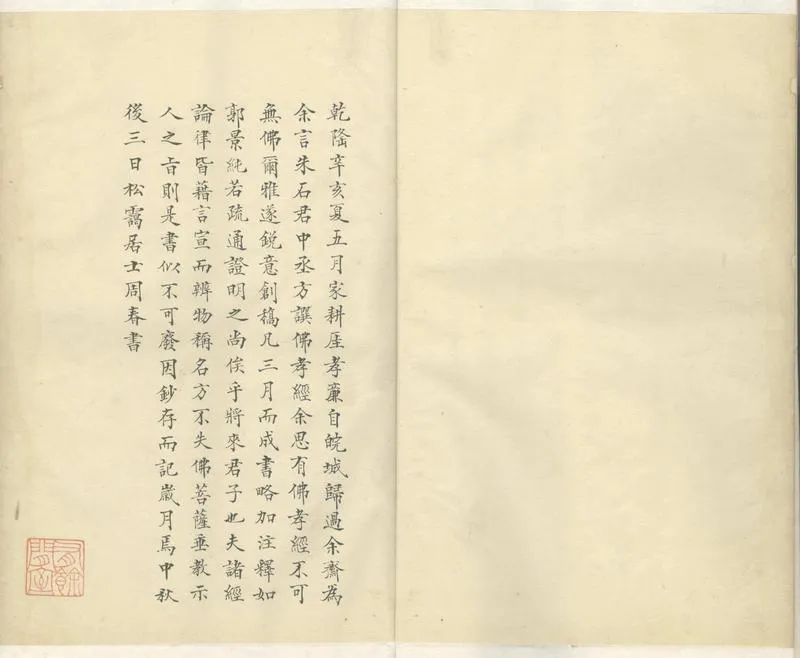 乾隆辛亥夏五月家耕厓孝廉自皖城歸過余齋為
余言朱石君中丞方譔佛孝經余思有佛孝經不可
無佛爾雅遂銳意創稿凡三月而成書略加注釋如
郭景純若疏通證明之尚俟乎將來君子也夫諸經
論律皆藉言宣而辨物稱名方不失佛菩薩垂教示
人之旨則是書似不可廢因鈔存而記歲月焉中秋
後三日松靄居士周春書